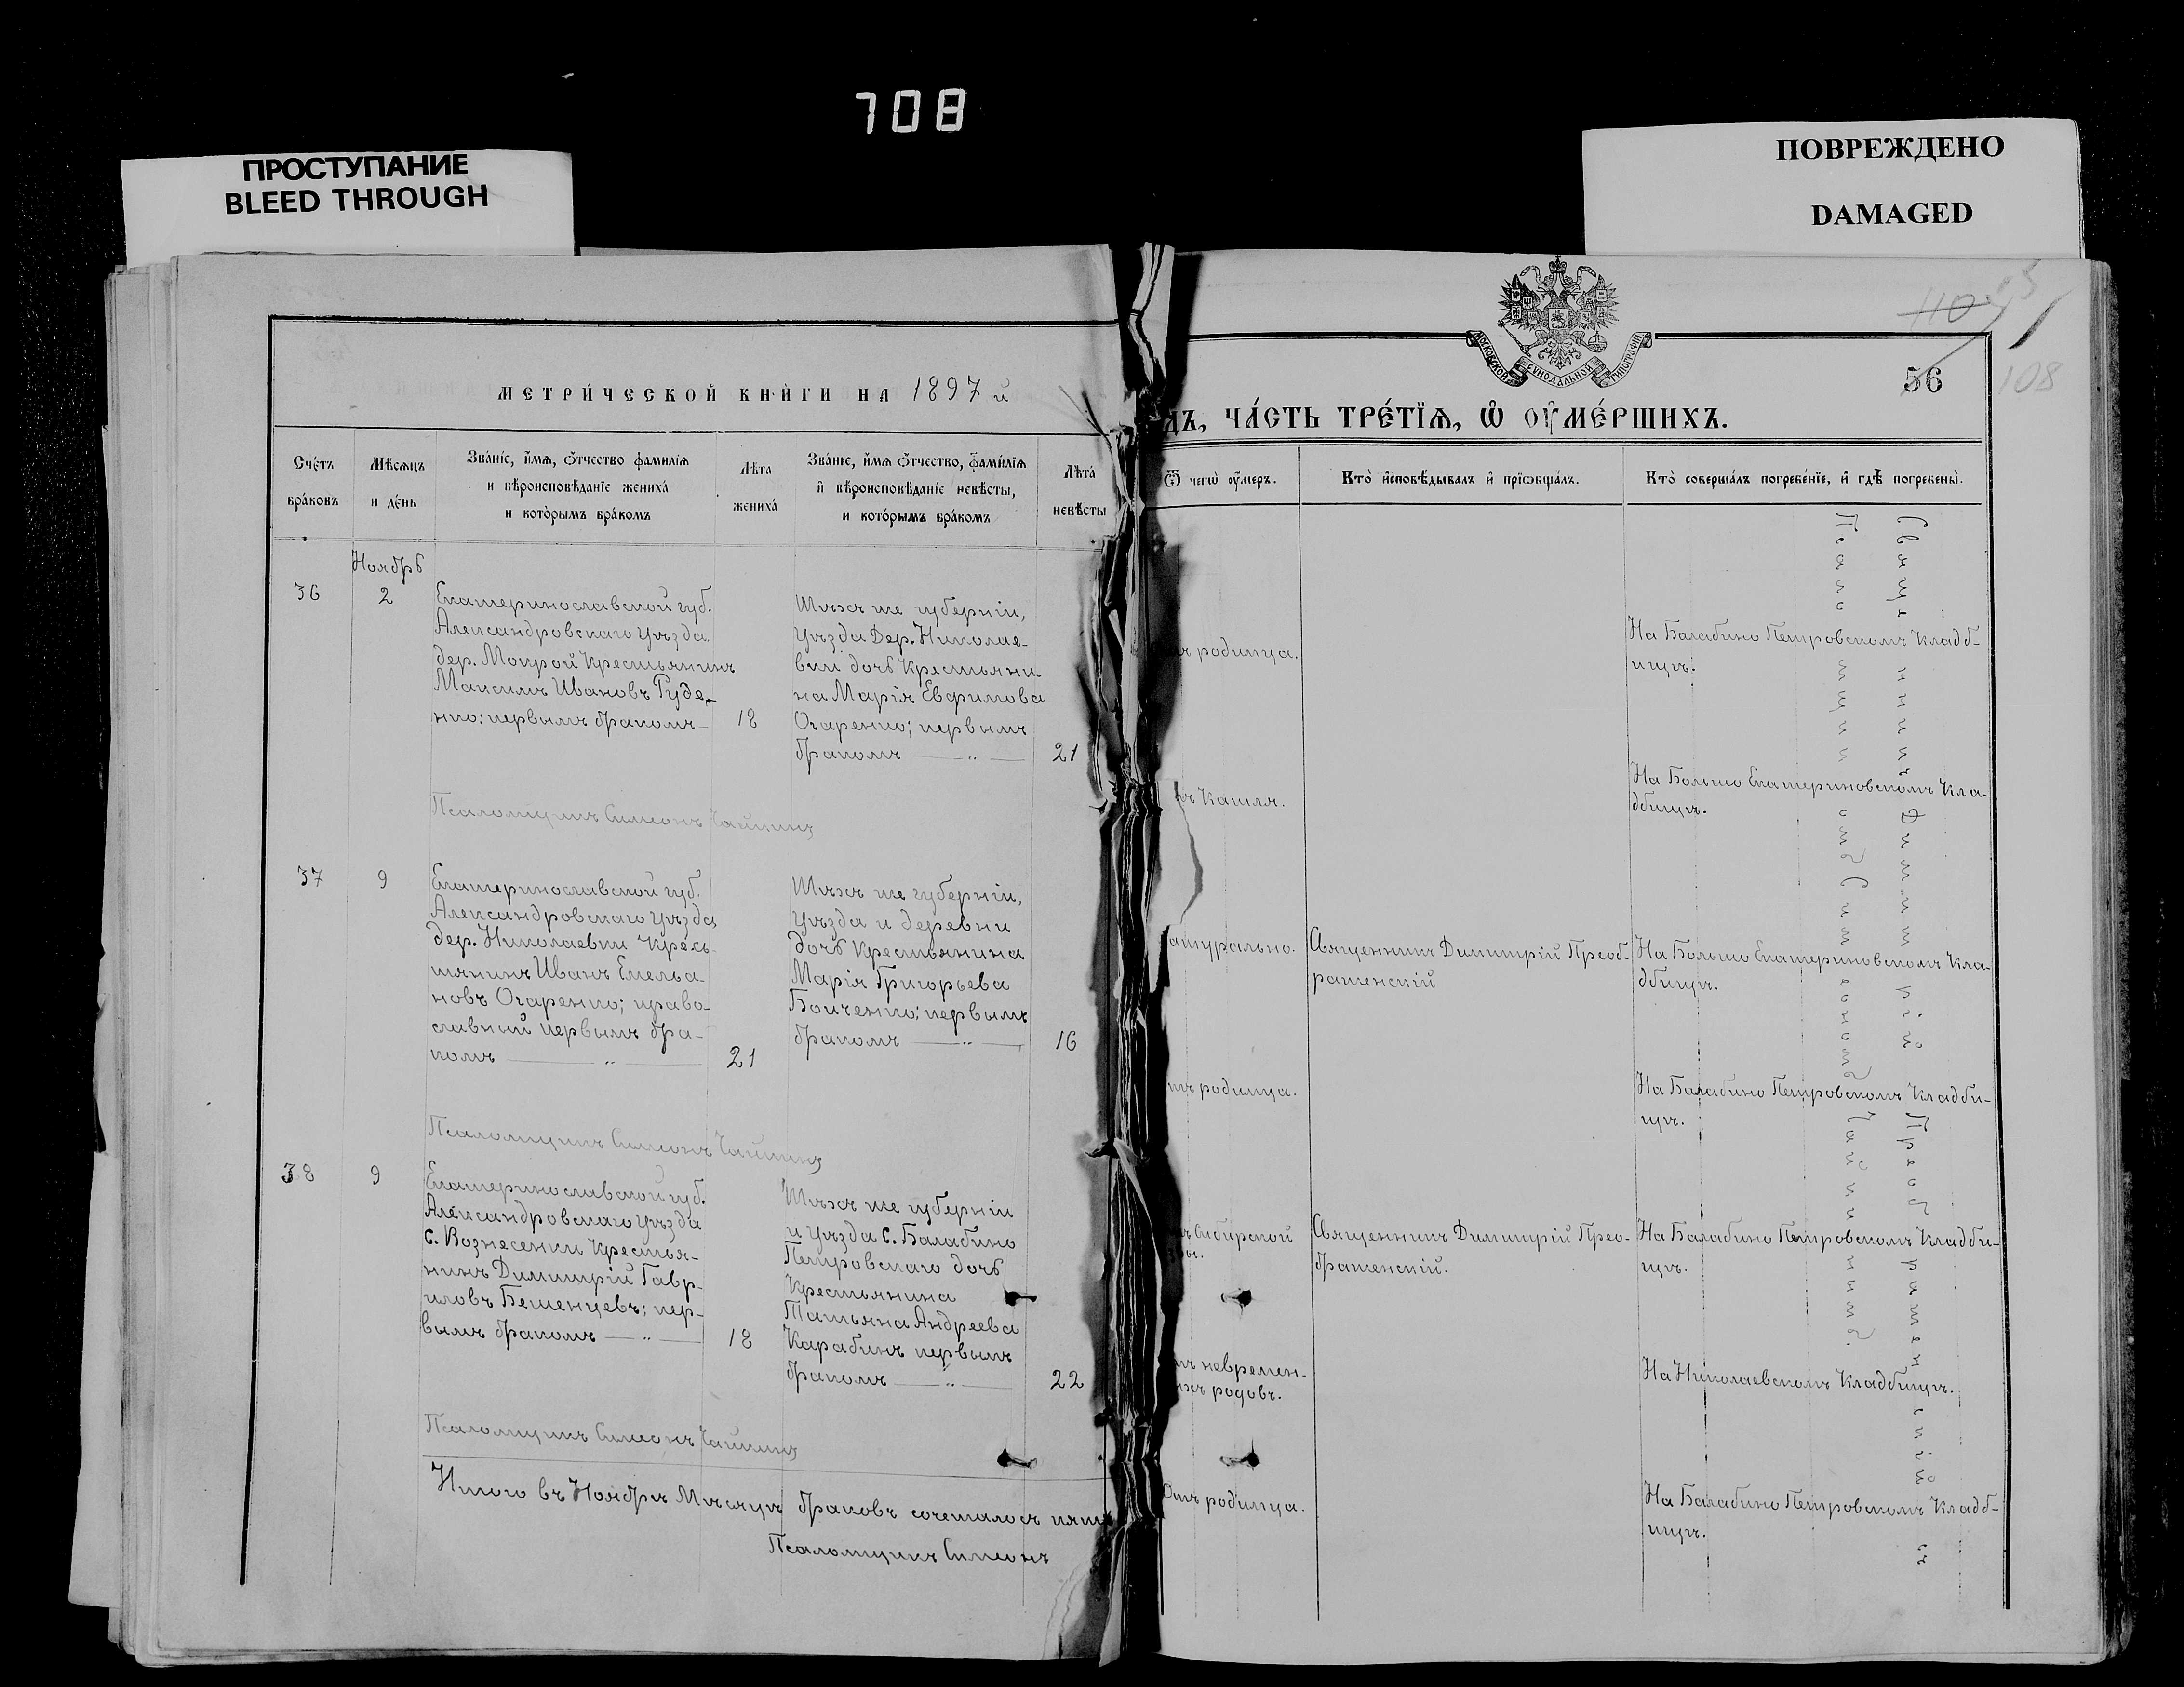 708
ПРОСТУПАНИЕ
BLEED THROUGH
ПОВРЕЖДЕНО
DAMAGED
МЕТРИ́ЧЕСКОЙ КНИ́ГИ НА 1897 й
Сче́тъ
бра́ковъ
Мѣсѧцъ
и де́нь
Зва́нїе, и҆́мѧ, ѻ҆́тчество фами́лїѧ
и вѣроисповѣда́нїе жениха́
и кото́рымъ бра́комъ
Лѣта
жениха́
Зва́нїе, и҆́мѧ ѻ҆́тчество, фами́лїѧ
и҆ вѣроисповѣда́нїе невѣ́сты,
и кото́рымъ бра́комъ
Лѣта̀
невѣ́сты
Ноябрь
36
2
Екатеринославской губ.
Александровскаго уѣзда
дер. Мокрой Крестьянинъ
Максимъ Ивановъ Руде-
нко; первымъ бракомъ —
18
Тѣхъ же губерніи,
уѣзда Дер. Николае-
вки дочь Крестьяни-
на Марія Евфимова
Огаренко; первымъ
бракомъ — „ —
21
Псаломщикъ Симеонъ Чайкинъ
37
9
Екатеринославской губ.
Александровскаго уѣзда,
дер. Николаевки Кресь-
тянинъ Иванъ Емелья-
новъ Огаренко; право-
славный первымъ бра-
комъ — „ —
21
Тѣхъ же губерніи,
уѣзда и деревни
дочь Крестьянина
Марія Григорьева
Бойченко; первымъ
бракомъ — „ —
16
Псаломщикъ Симеонъ Чайкинъ
38
9
Екатеринославской губ.
Александровскаго уѣзда
с. Вознесенки Крестья-
нинъ Димитрій Гавр-
иловъ Бешенцевъ; пер-
вымъ бракомъ — „ —
18
Тѣхъ же губерніи
и уѣзда с. Балабино
Петровскаго дочь
Крестьянина
Татьяна Андреева
Карабинъ первымъ
бракомъ — „ —
22
Псаломщикъ Симеонъ Чайкинъ
Итого въ Ноябрѣ Мѣсяцѣ браковъ сочеталось пять
Псаломщикъ Симеонъ
МОСКОВСКОЙ СѴНОДАЛЬНОЙ ТИПОГРАФІИ
110
56
108
дъ, ЧА́СТЬ ТРЕ́ТЇѦ, Ѡ҆ ОУ҆МЕ́РШИХЪ.
Ѿ чегѡ̀ оу҆́меръ.
Кто̀ и҆сповѣ́дывалъ и҆ прїѡбща́лъ.
Кто̀ соверша́лъ погребе́нїе, и҆ гдѣ̀ погребены̀.
ъ родимца.
На Балабино Петровскомъ Кладб-
ищѣ.
ъ Кашля.
На Больше Екатериновскомъ Кла-
дбищѣ.
атурально.
Священникъ Димитрій Преоб-
раженскій
На Больше Екатериновскомъ Кла-
дбищѣ.
тъ родимца.
На Балабино Петровскомъ Кладби-
щѣ.
ъ Сибирской
Священникъ Димитрій Прео-
браженскій.
На Балабино Петровскомъ Кладби-
щѣ.
тъ невремен-
ыхъ родовъ.
На Николаевскомъ Кладбищѣ.
Отъ родимца.
На Балабино Петровскомъ Кладб-
ищѣ.
Священникъ Димитрій Преображенскій съ
Псаломщикомъ Симеономъ Чайкинымъ.